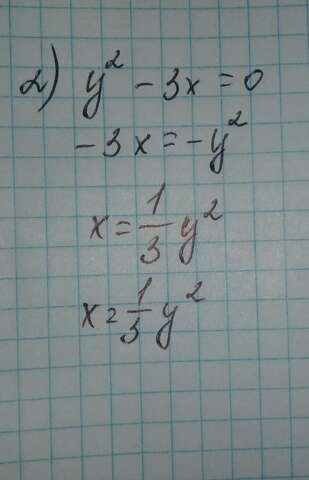 2) y² - 3x = 0
-3x = -y²
x = 1/3 y²
x = 1/3 y²